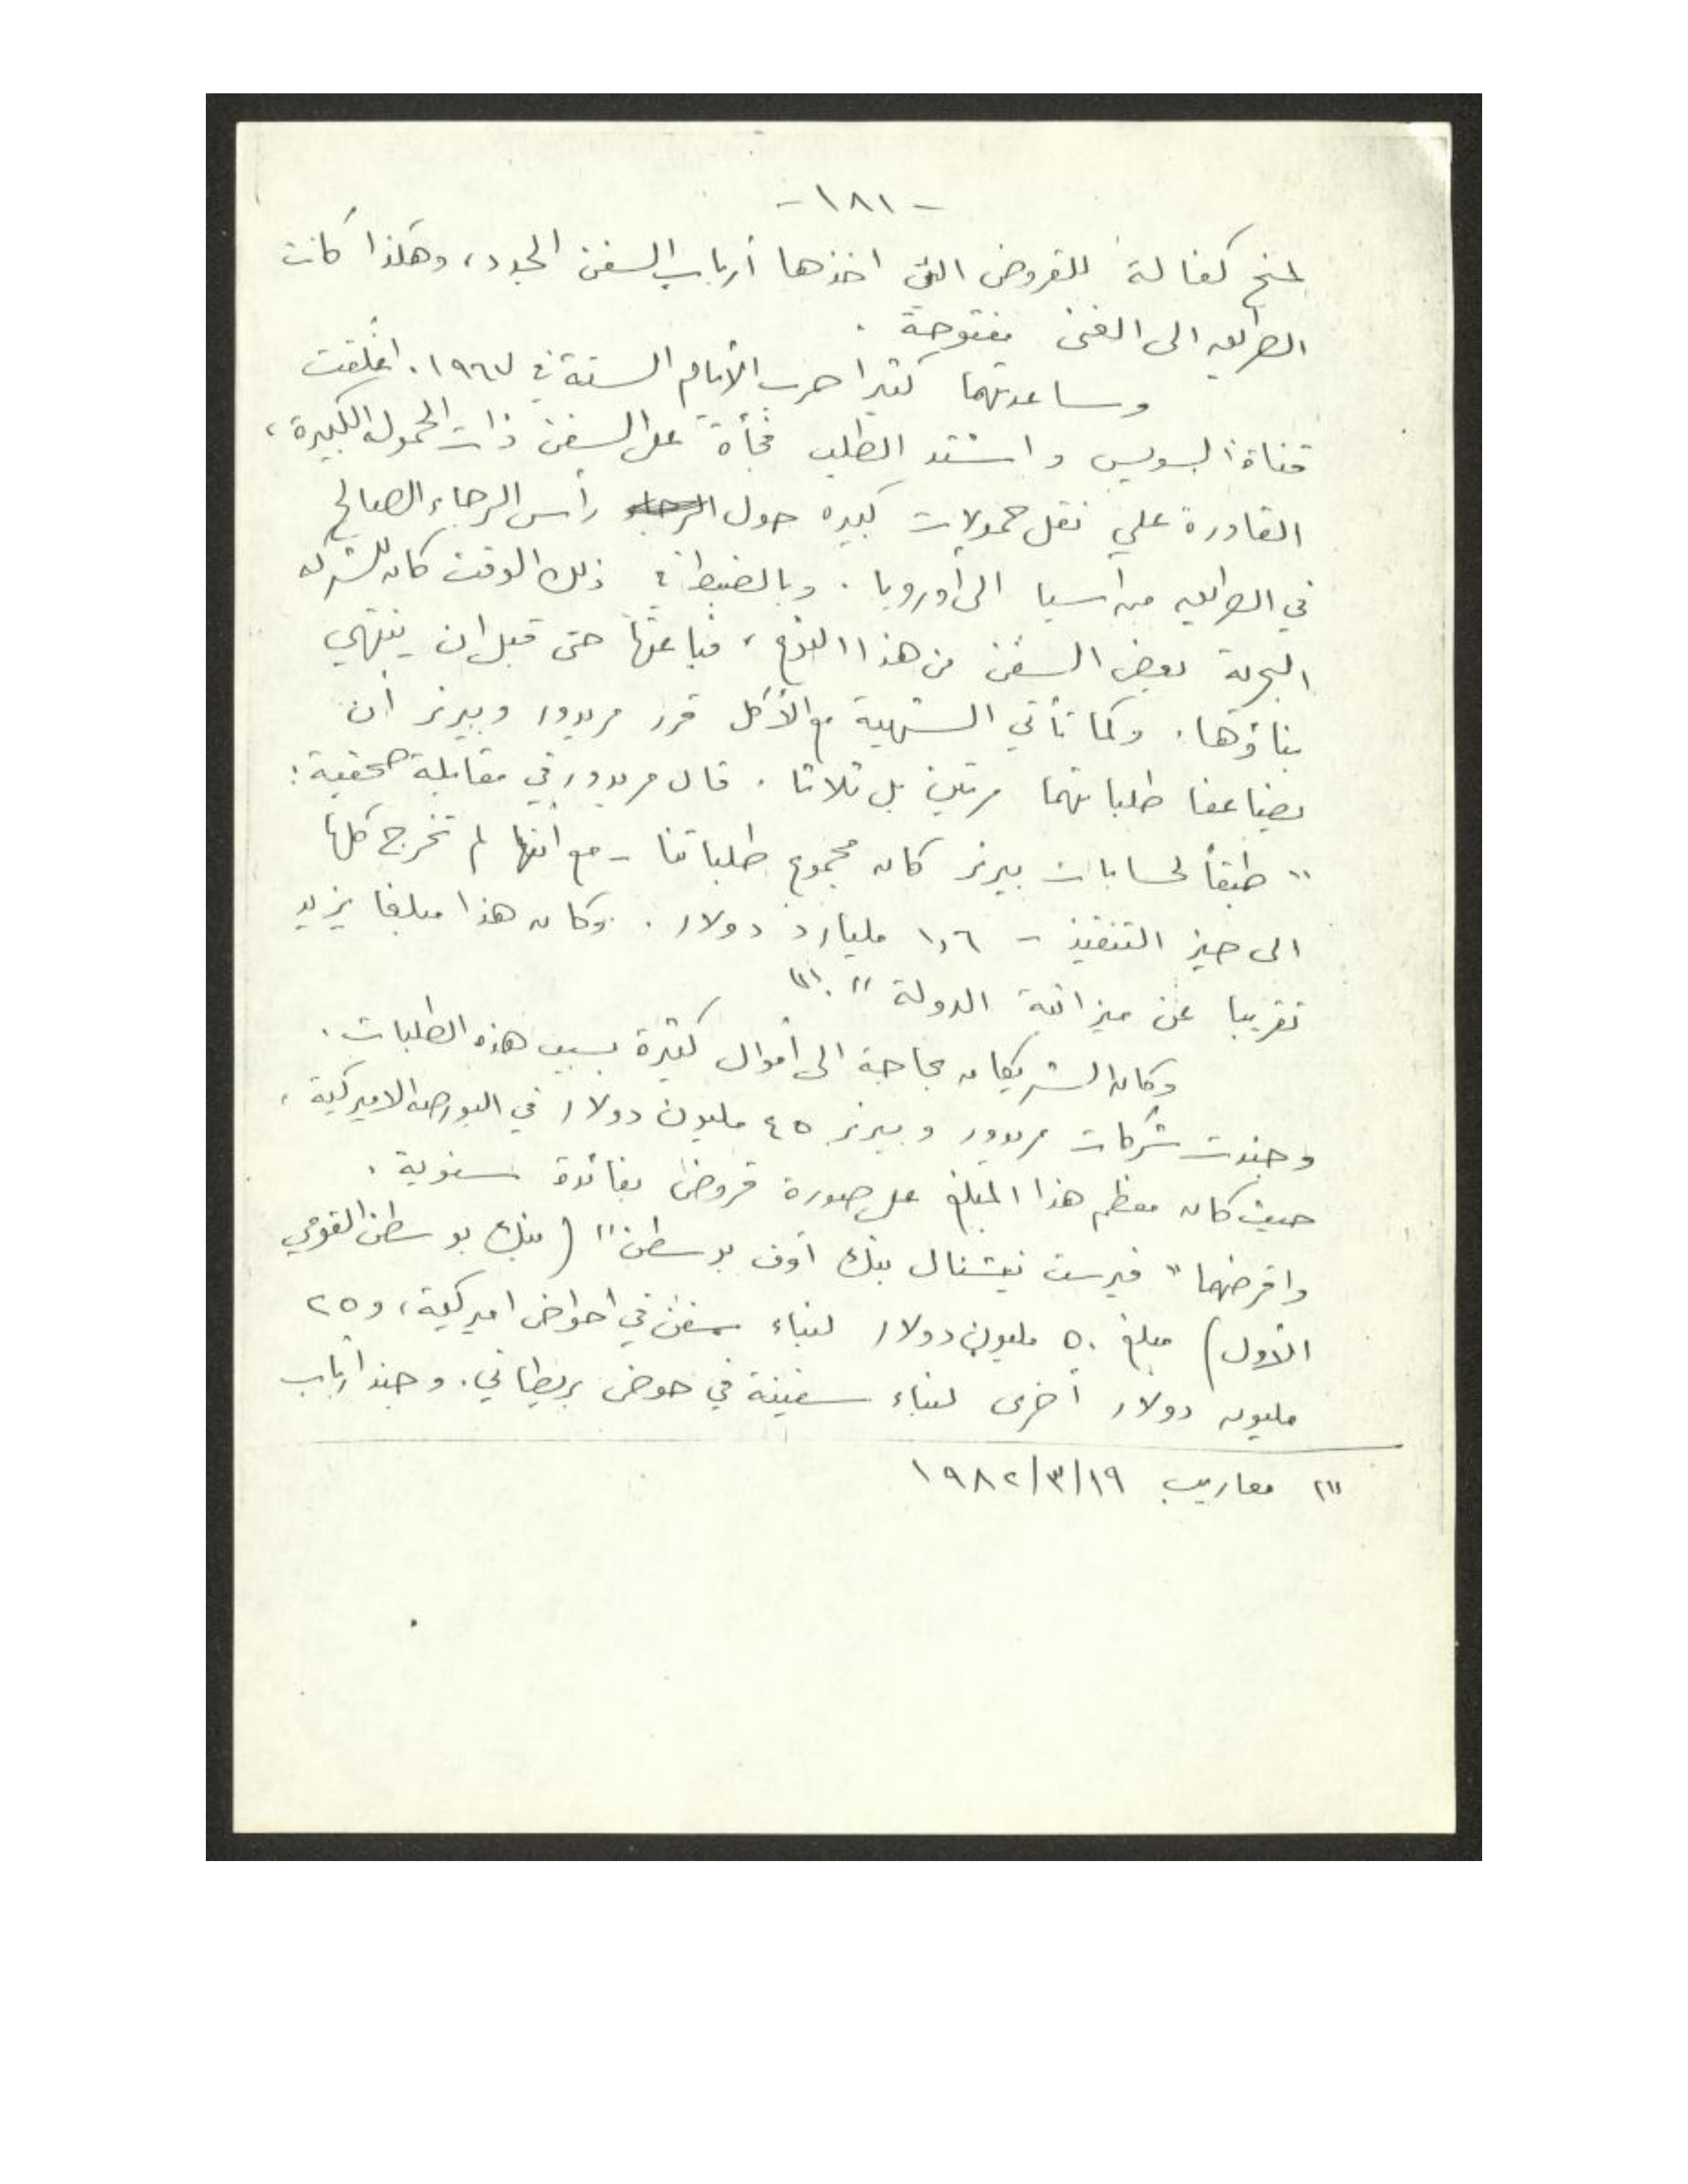 - ١٨١ -
لمنح كفالة للقروض التي اخذها أرباب السفن الجدد، وهكذا كانت
الطريق الى الغنى مفتوحة .
وساعدتهما كثيرا حرب الأيام الستة في ١٩٦٧. اغلقت
قناة السويس واشتد الطلب فجأة على السفن ذات الحمولة الكبيرة،
القادرة على نقل حمولات كبيره حول رأس الرجاء الصالح
في الطريق من آسيا الى أوروبا . وبالضبط في ذلك الوقت كان للشركه
البحرية بعض السفن من هذا النوع ، فباعتها حتى قبل ان ينتهي
بناؤها. وكما تأتي الشهية مع الأكل قرر مريدور وبيرنز أن
يضاعفا طلباتهما مرتين بل ثلاثا . قال مريدور في مقابلة صحفية :
" طبقاً لحسابات بيرنز كان مجموع طلباتنا - مع أنها لم تخرج كلها
الى حيز التنفيذ - ١,٦ مليارد دولار . وكان هذا مبلغا يزيد
تقريبا عن ميزانية الدولة ". (٢)
وكان الشريكان بحاجة الى أموال كثيرة بسبب هذه الطلبات .
وجندت شركات مريدور وبيرنز ٤٥ مليون دولار في البورصه الاميركية ،
حيث كان معظم هذا المبلغ على صورة قروض بفائدة سنوية .
واقرضهما " فيرست نيشنال بنك أوف بوسطن " ( بنك بوسطن القومي
الأول ) مبلغ ٥٠ مليون دولار لبناء سفن في احواض اميركية، و ٢٥
مليون دولار أخرى لبناء سفينة في حوض بريطاني. وجند أرباب
(٢) معاريب ١٩٨٢/٣/١٩